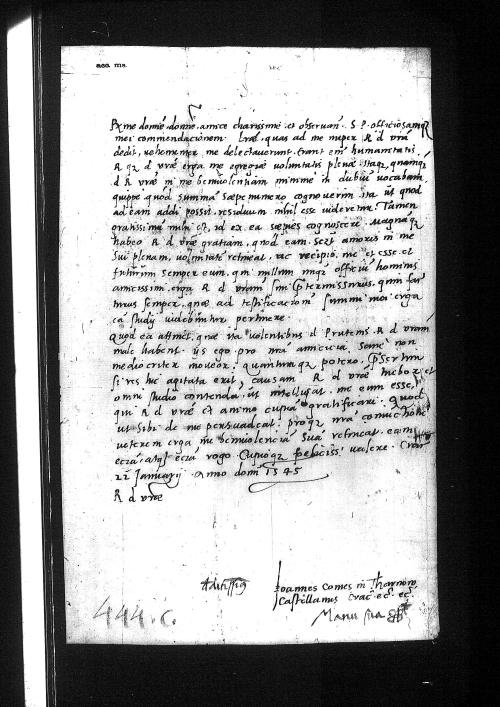 aeo. ms.
Rxme domine domine amice charissime et observan. S. P. officiosamqz
mei commendacionem. Lrae, quas ad me nuper R d vra
dedit, vehementer me delectaverunt. Erant enim humanitatis
R qz d vrae erga me egregiae voluntatis plenae. Itaqz, quamqz
d R vrae in me benivolentiam minime in dubiu vocabam
quippe quod summa saepenumero cognoverim ita ut quod
ad eam addi possit residuum nihil esse videretur. Tamen
gratissima mihi est, id ex ea saepius cognoscere. Magnaqz
habeo R d vrae gratiam, quod eam, amoris in me
sui plenam, voluntate retineat, ac recipio, me et esse et
futurum semper eum, qui nullum unqz officiu hominis
amicissimi erga R d vram sim ptermissurus, quin fac
turus semper, quae ad testificacionem summi mei erga
ea studij videbuntur pertinere.
Quod ea attinet, quae ita violentibus d Prutenis R d vram
male habent, ijs ego pro nra amicicia sane non
mediocriter moveor: quantumqz potero, psertim
si res hic agitata erit, causam R d vrae iuvabo et
omni studio contendam, ut intelligat, me eum esse,
qui R d vrae et animo cupiat gratificari. Quod
ut sibi de me persuadeat, proqz nra coniunctione
veterem erga me benivolenciam suam retineat, eam
etiam atqz etiam rogo. Cupioqz felicissime valere. Crac
22 January Anno domi 1545
R d vrae
Joannes Comes in Tharnow
Castellanus Crac. ec. ec.
Manu sua
444. C.